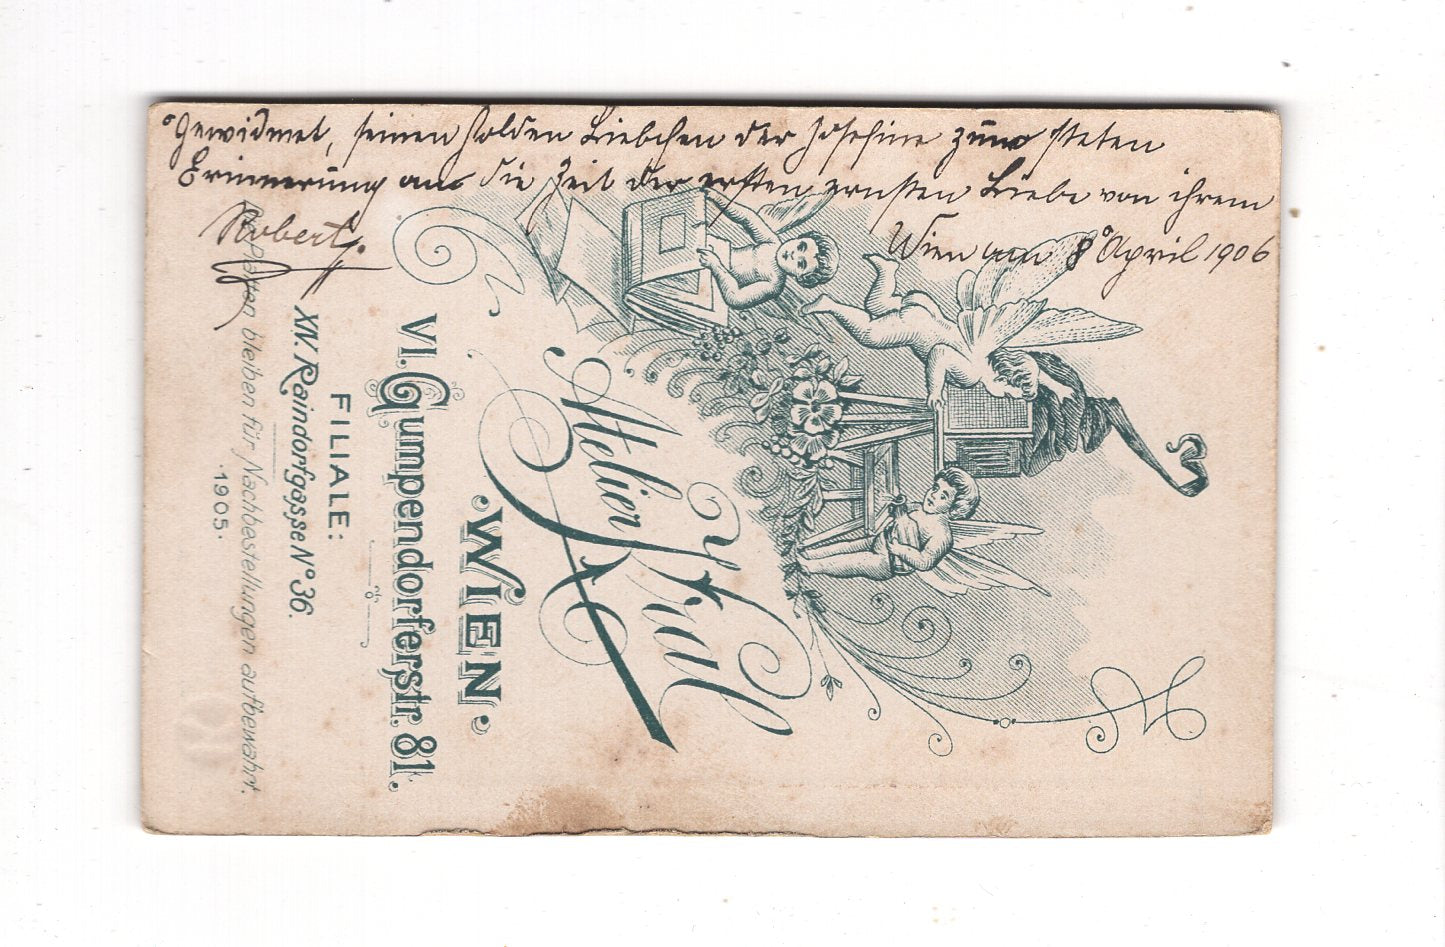 Gewidmet, seinen holden Liebchen der Josefine zum steten
Erinnerung an die Zeit der ersten ernsten Liebe von ihrem
Robert.
Wien am 8 April 1906
Atelier Kral
WIEN
VI. Gumpendorferstr. 81.
FILIALE:
XIV. Raindorfgasse No 36.
Die Platten bleiben für Nachbestellungen aufbewahrt.
·1905·